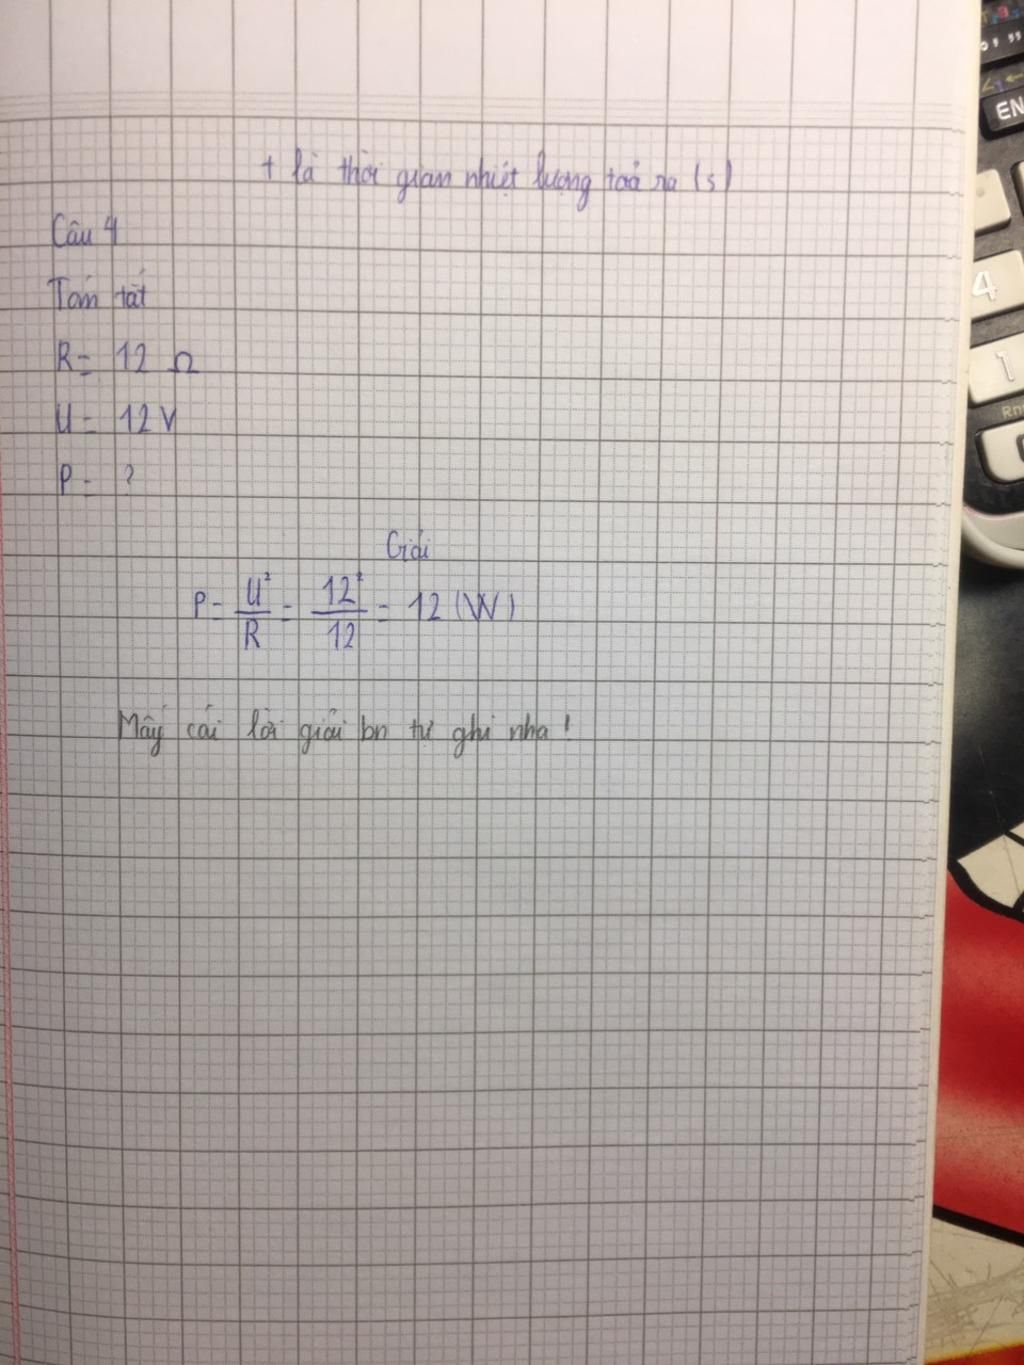 t là thời gian nhiệt lượng toả ra (s)
Câu 4
Tóm tắt
R = 12 Ω
U = 12 V
P = ?
Giải
P = U²/R = 12²/12 = 12 (W)
Mấy cái lời giải bn tự ghi nha!
EN
4
1